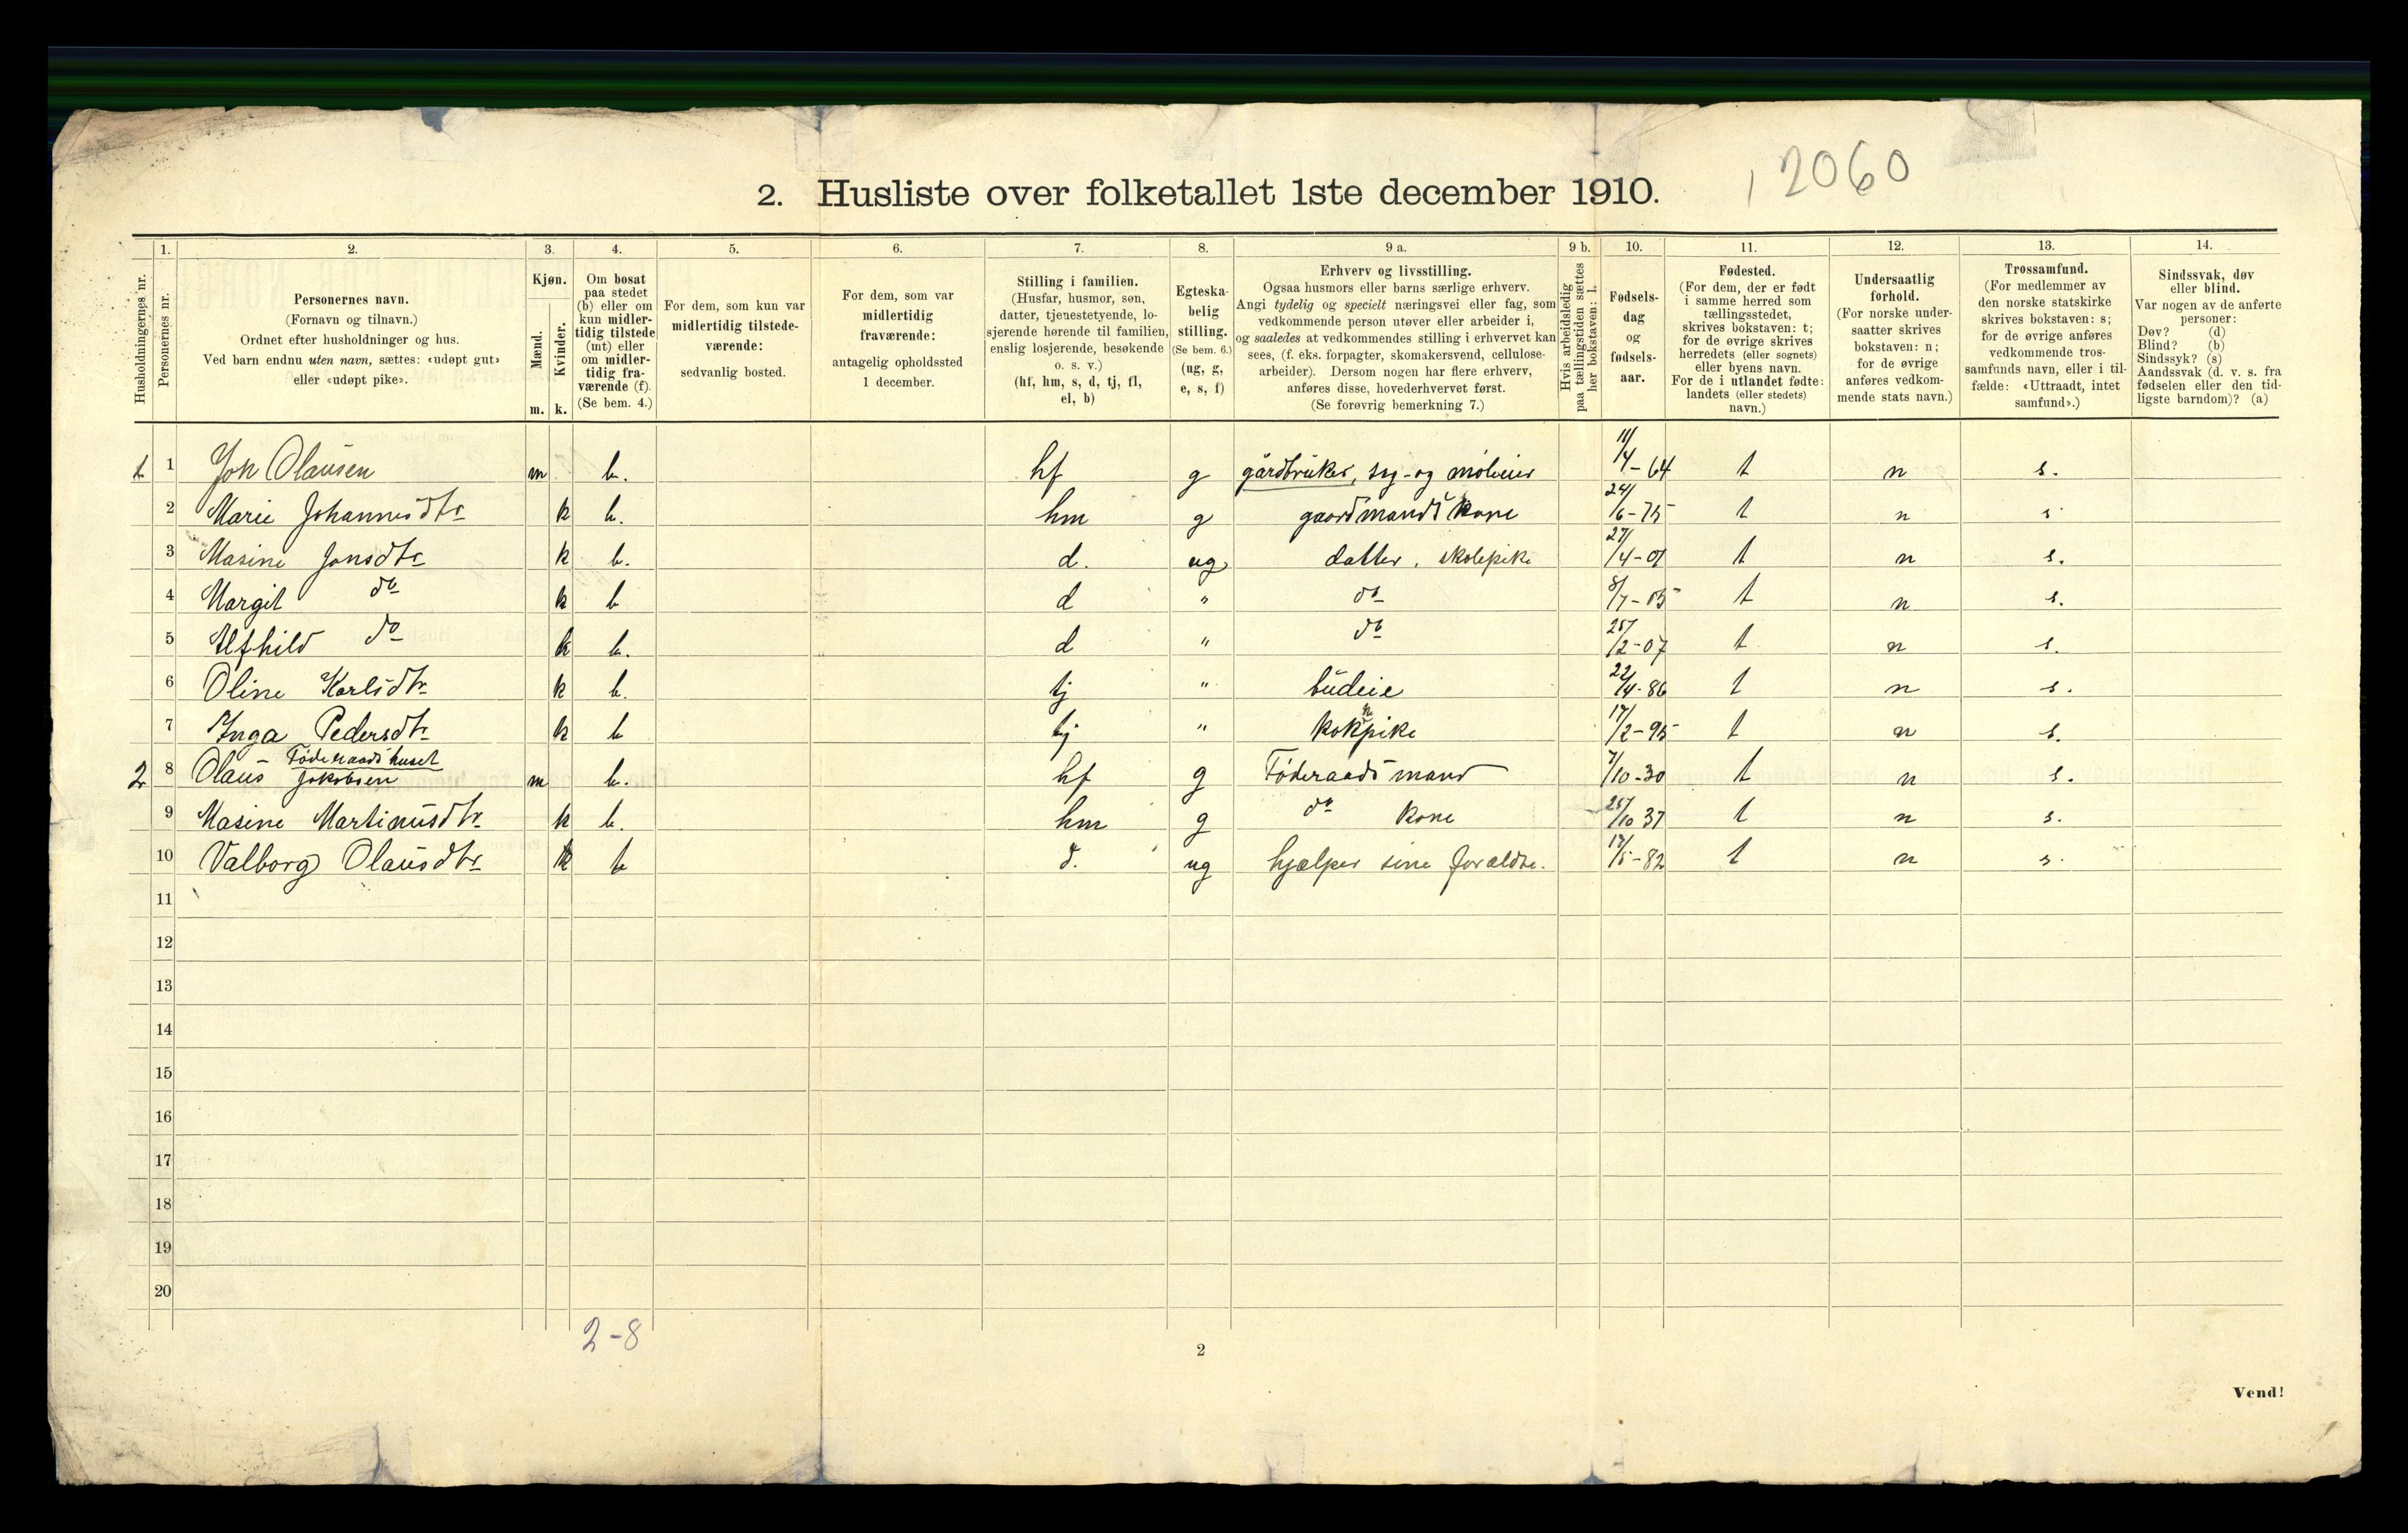 , 2060
2. Husliste over folketallet 1ste december 1910.
Husholdningernes nr.
1. Personernes nr.
2. Personernes navn.
(Fornavn og tilnavn.)
Ordnet efter husholdninger og hus.
Ved barn endnu uten navn, sættes: «udøpt gut»
eller «udøpt pike».
3. Kjøn.
Mænd. Kvinder.
m. k.
4. Om bosat
paa stedet
(b) eller om
kun midler-
tidig tilstede
(mt) eller
om midler-
tidig fra-
værende (f).
(Se bem. 4.)
5. For dem, som kun var
midlertidig tilstede-
værende:
sedvanlig bosted.
6. For dem, som var
midlertidig
fraværende:
antagelig opholdssted
1 december.
7. Stilling i familien.
(Husfar, husmor, søn,
datter, tjenestetyende, lo-
sjerende hørende til familien,
enslig losjerende, besøkende
o. s. v.)
(hf, hm, s, d, tj, fl,
el, b)
8. Egteska-
belig
stilling.
(Se bem. 6.)
(ug, g,
e, s, f)
9 a. Erhverv og livsstilling.
Ogsaa husmors eller barns særlige erhverv.
Angi tydelig og specielt næringsvei eller fag, som
vedkommende person utøver eller arbeider i,
og saaledes at vedkommendes stilling i erhvervet kan
sees, (f. eks. forpagter, skomakersvend, cellulose-
arbeider). Dersom nogen har flere erhverv,
anføres disse, hovederhvervet først.
(Se forøvrig bemerkning 7.)
9 b. Hvis arbeidsledig
paa tællingstiden sættes
her bokstaven: l.
10. Fødsels-
dag
og
fødsels-
aar.
11. Fødested.
(For dem, der er født
i samme herred som
tællingsstedet,
skrives bokstaven: t;
for de øvrige skrives
herredets (eller sognets)
eller byens navn.
For de i utlandet fødte:
landets (eller stedets)
navn.)
12. Undersaatlig
forhold.
(For norske under-
saatter skrives
bokstaven: n;
for de øvrige
anføres vedkom-
mende stats navn.)
13. Trossamfund.
(For medlemmer av
den norske statskirke
skrives bokstaven: s;
for de øvrige anføres
vedkommende tros-
samfunds navn, eller i til-
fælde: «Uttraadt, intet
samfund».)
14. Sindssvak, døv
eller blind.
Var nogen av de anførte
personer:
Døv? (d)
Blind? (b)
Sindssyk? (s)
Aandssvak (d. v. s. fra
fødselen eller den tid-
ligste barndom)? (a)
1 1 Jon Olausen m b. hf g gårdbruker, sag- og mølleeier 11/4-64 t n s.
2 Marie Johannesdtr k b. hm g gaardmands kone 24/6-75 t n s
3 Masine Jonsdtr k b. d. ug datter, skolepike 27/4-01 t n s.
4 Margit do k b d " do 8/7-05 t n s.
5 Alfhild do k b. d " do 25/2-07 t n s.
6 Oline Karlsdtr k b. tj " budeie 22/4-86 t n s.
7 Inga Pedersdtr k b tj " kokpike 17/2-95 t n s.
Føderaadshuset
2 8 Olaus Jakobsen m b. hf g Føderaadsmand 7/10-30 t n s.
9 Masine Martinusdtr k b. hm g do kone 25/10 37 t n s.
10 Valborg Olausdtr k b d. ug hjælper sine forældre. 17/5-82 t n s.
11
12
13
14
15
16
17
18
19
20
2-8
2
Vend!